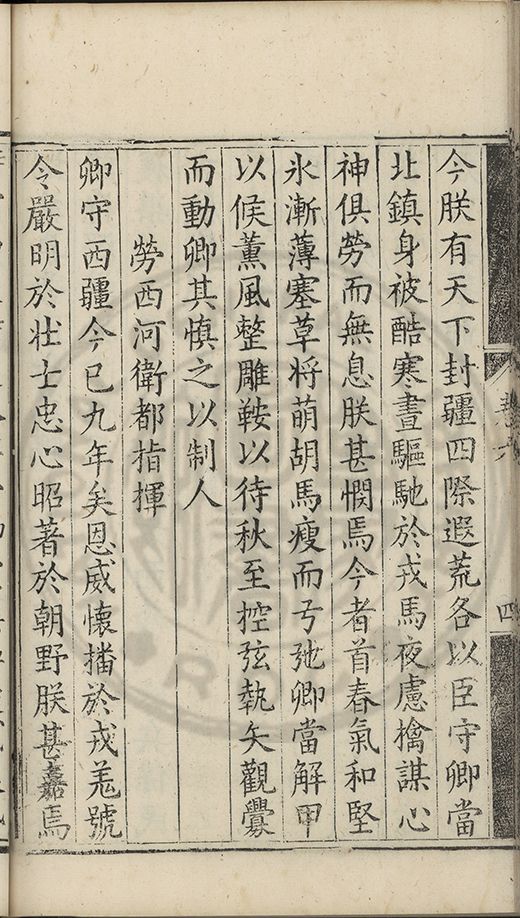 今朕有天下封疆四際遐荒各以臣守卿當
北鎮身被酷寒晝驅馳於戎馬夜慮擒謀心
神俱勞而無息朕甚憫焉今者首春氣和堅
氷漸薄塞草将萌胡馬瘦而弓弛卿當解甲
以候薫風整雕鞍以待秋至控弦執矢觀釁
而動卿其慎之以制人
勞西河衛都指揮
卿守西疆今已九年矣恩威懷播於戎羗號
令嚴明於壮士忠心昭著於朝野朕甚嘉焉
卷六
四